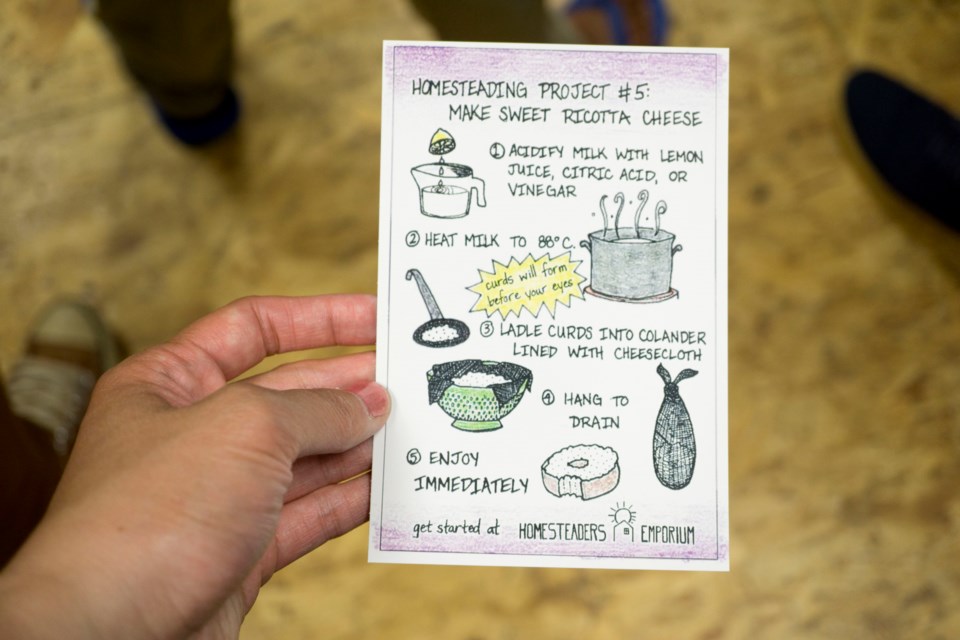 HOMESTEADING PROJECT #5:
MAKE SWEET RICOTTA CHEESE
① ACIDIFY MILK WITH LEMON
JUICE, CITRIC ACID, OR
VINEGAR
② HEAT MILK TO 88°C.
curds will form
before your eyes
③ LADLE CURDS INTO COLANDER
LINED WITH CHEESECLOTH
④ HANG TO
DRAIN
⑤ ENJOY
IMMEDIATELY
get started at HOMESTEADERS EMPORIUM